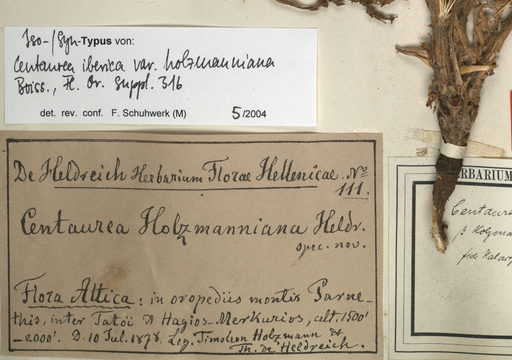 Iso-/Syn-Typus von:
Centaurea iberica var. holzmanniana
Boiss., Fl. Or. Suppl. 316
det. rev. conf. F. Schuhwerk (M) 5/2004
De Heldreich Herbarium Florae Hellenicae. No
111.
Centaurea Holzmanniana Heldr.
spec. nov.
Flora Attica: in oropediis montis Parne-
this, inter Tatoï & Hagios-Merkurios, alt. 1500'
-2000'. D. 10 Jul. 1878. Leg. Timoleon Holzmann &
Th. de Heldreich.
HERBARIUM
Centaurea
β Holzma
fide Halacsy